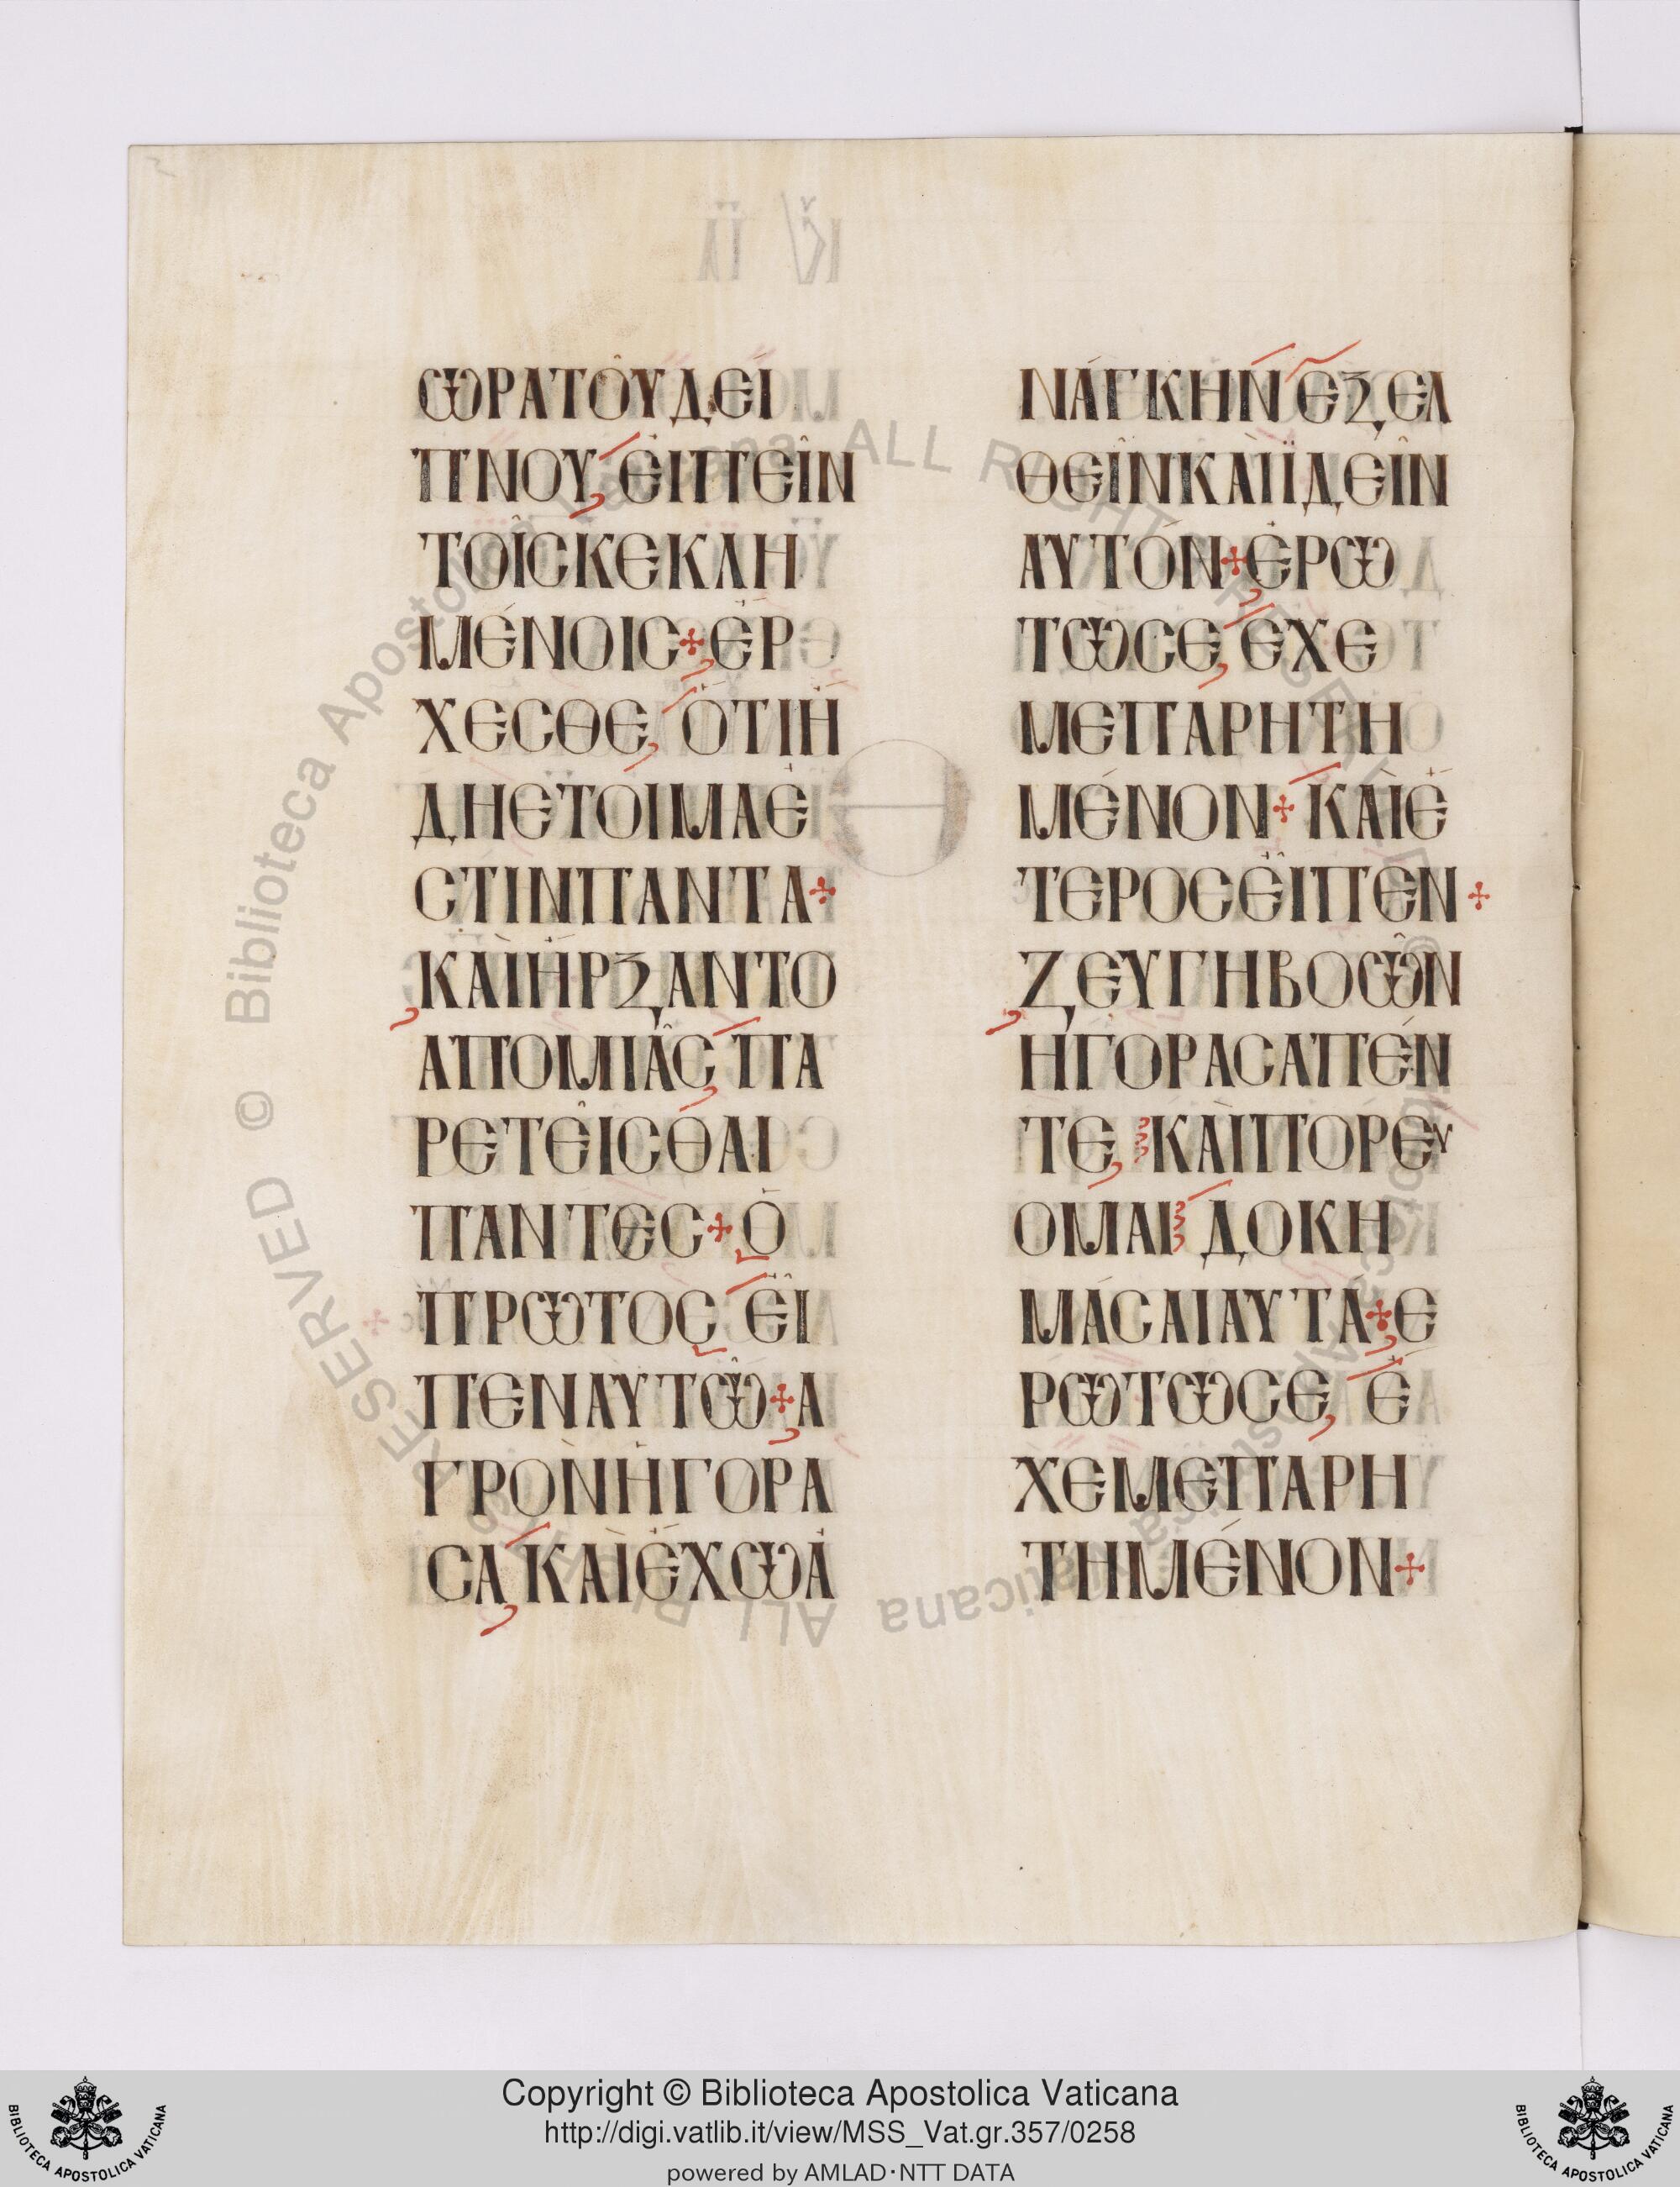 ΩΡΑΤΟΥ͂ΔΕΊ
ΠΝΟΥ ΕἸΠΕΙ͂Ν
ΤΟΙ͂СΚΕΚΛΗ
ΜΈΝΟΙС+ἘΡ
ΧΕСΘΕ ὍΤΙΉ
ΔΗΕΤΟΙΜΑἘ
СΤΙΝΠΑΝΤΑ+
ΚΑῚΉΡΞΑΝΤΟ
ΑΠΟΜΙΑ͂С ΠΑ
ΡΕΤΕΙ͂СΘΑΙ
ΠΑΝΤΕС+Ὁ
ΠΡΩΤΟС ΕἾ
ΠΕΝΑΥΤΩ͂+Α
ΓΡῸΝἨΓΟΡΑ
СΑ ΚΑῚἜΧΩἈ
ΝΆΓΚΗΝ ἘΞΕΛ
ΘΕΙ͂ΝΚΑῚΪΔΕΙ͂Ν
ΑΥΤΌΝ+ἘΡΩ
ΤΩСΕ ΕΧΕ
ΜΕΠΑΡΗΤΗ
ΜΈΝΟΝ+ΚΑῚἝ
ΤΕΡΟСΕἾΠΕΝ+
ΖΕΥΓΗΒΟΩ͂Ν
ἨΓΟΡΑСΑΠΈΝ
ΤΕ ΚΑῚΠΟΡΕΥ
ΟΜΑΙ ΔΟΚΗ
ΜΆСΑΙΑΥΤΑ+Ε
ΡΩΤΩСΕ Ἔ
ΧΕΜΕΠΑΡΗ
ΤΗΜΈΝΟΝ+
© Biblioteca Apostolica Vaticana ALL RIGHTS RESERVED © Biblioteca Apostolica Vaticana ALL RIGHTS RESERVED
Copyright © Biblioteca Apostolica Vaticana
http://digi.vatlib.it/view/MSS_Vat.gr.357/0258
powered by AMLAD·NTT DATA
BIBLIOTECA APOSTOLICA VATICANA
BIBLIOTECA APOSTOLICA VATICANA